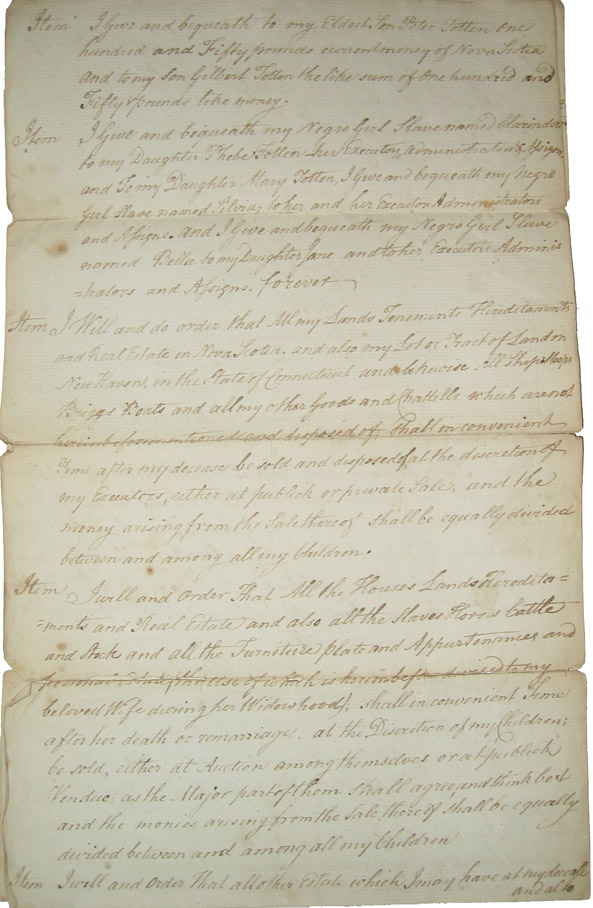 Item I Give and bequeath to my Eldest Son Peter Totten One
hundred and Fifty pounds current money of Nova Scotia
And to my Son Gilbert Totten the like sum of One hundred and
Fifty pounds like money.
Item I Give and bequeath my Negro Girl Slave named Clarinda
to my Daughter Phebe Totten her Executors Administrators & Assigns
and To my Daughter Mary Totten, I Give and bequeath my Negro
Girl Slave named Silvia; to her and her Executors Administrators
and Assigns. And I Give and bequeath my Negro Girl Slave
named Bella to my Daughter Jane and to her Executors Adminis
=trators and Assigns. forever
Item I Will and do order that All my Lands Tenements Hereditaments
and Real Estate in Nova Scotia. and also my Lot or Tract of Land on
New Haven, in the State of Connecticut and likewise All Ships Sloops
Briggs Boats and all my other Goods and Chattells which are not
herein beforementioned and disposed of, Shall in convenient
Time after my decease be sold and disposed of at the discretion of
my Executors, either at publick or private Sale, and the
money arising from the Sale thereof shall be equally divided
between and among all my Children.
Item I will and Order That All the Houses Lands Heredita=
=ments and Real Estate and also all the Slaves Horses Cattle
and Stock and all the Furniture plate and Appurtenances and
personal Estate (the use of which is herein before devised to my
beloved Wife during her Widowhood); shall in convenient Time
after her death or remarriage, at the Discretion of my Children;
be sold, either at Auction among themselves or at publick
Vendue, as the Major part of them shall agree and think best
and the monies arising from the Sale thereof shall be equally
divided between and among all my Children
Item I will and Order That all other Estate which I may have at my decease
and also